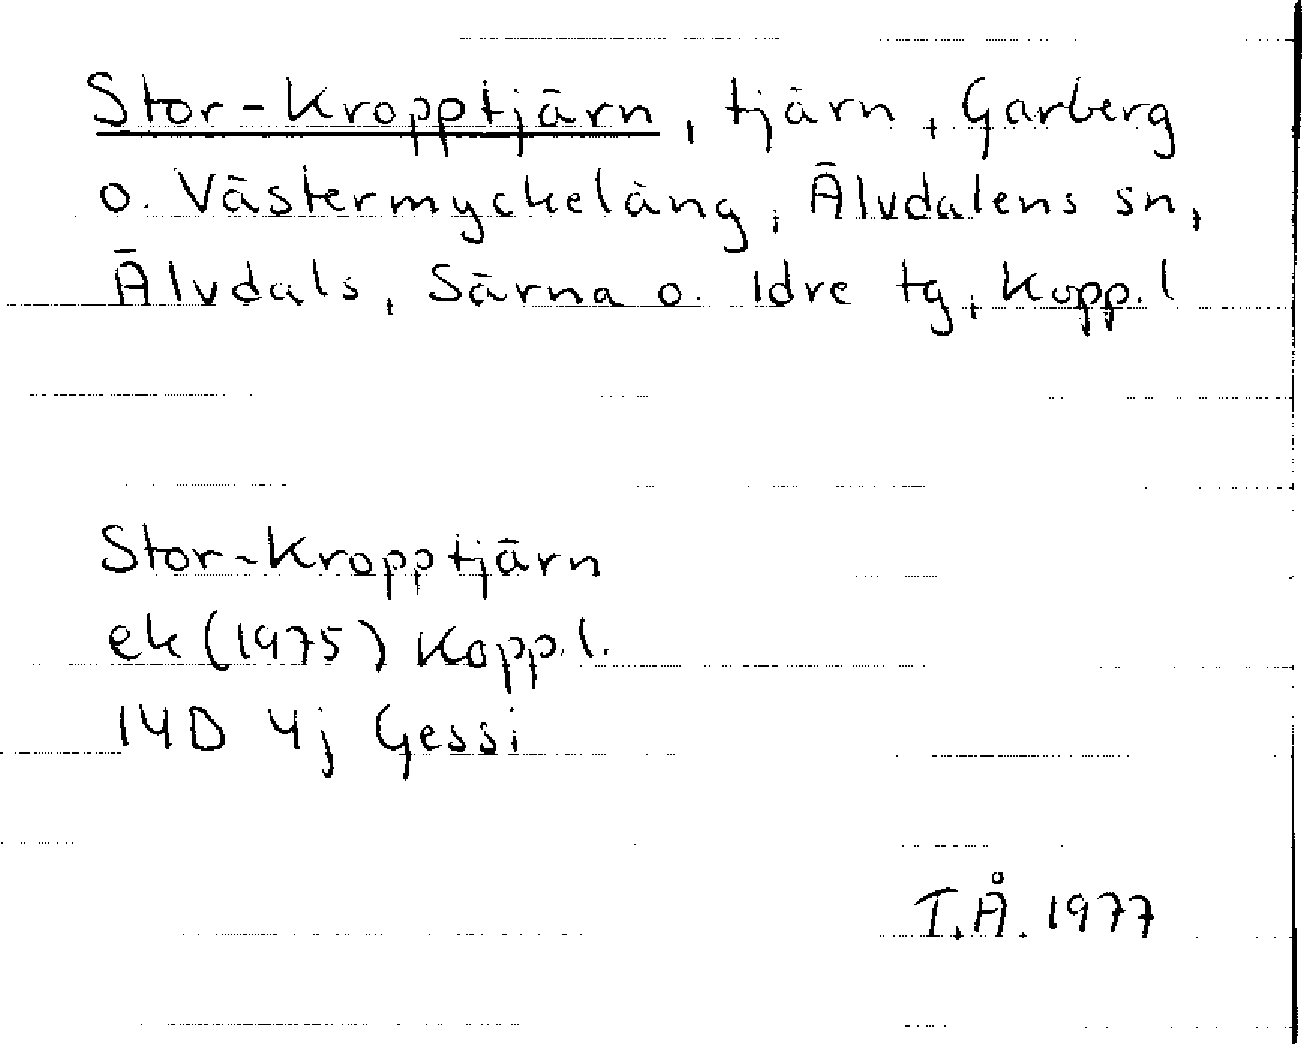 Stor-Kropptjärn, tjärn, Garberg
o. Västermyckeläng, Älvdalens sn,
Älvdals, Särna o. Idre tg, Kopp.l
Stor-Kropptjärn
ek (1975) Kopp.l.
14D 4j Gessi
T.Å. 1977